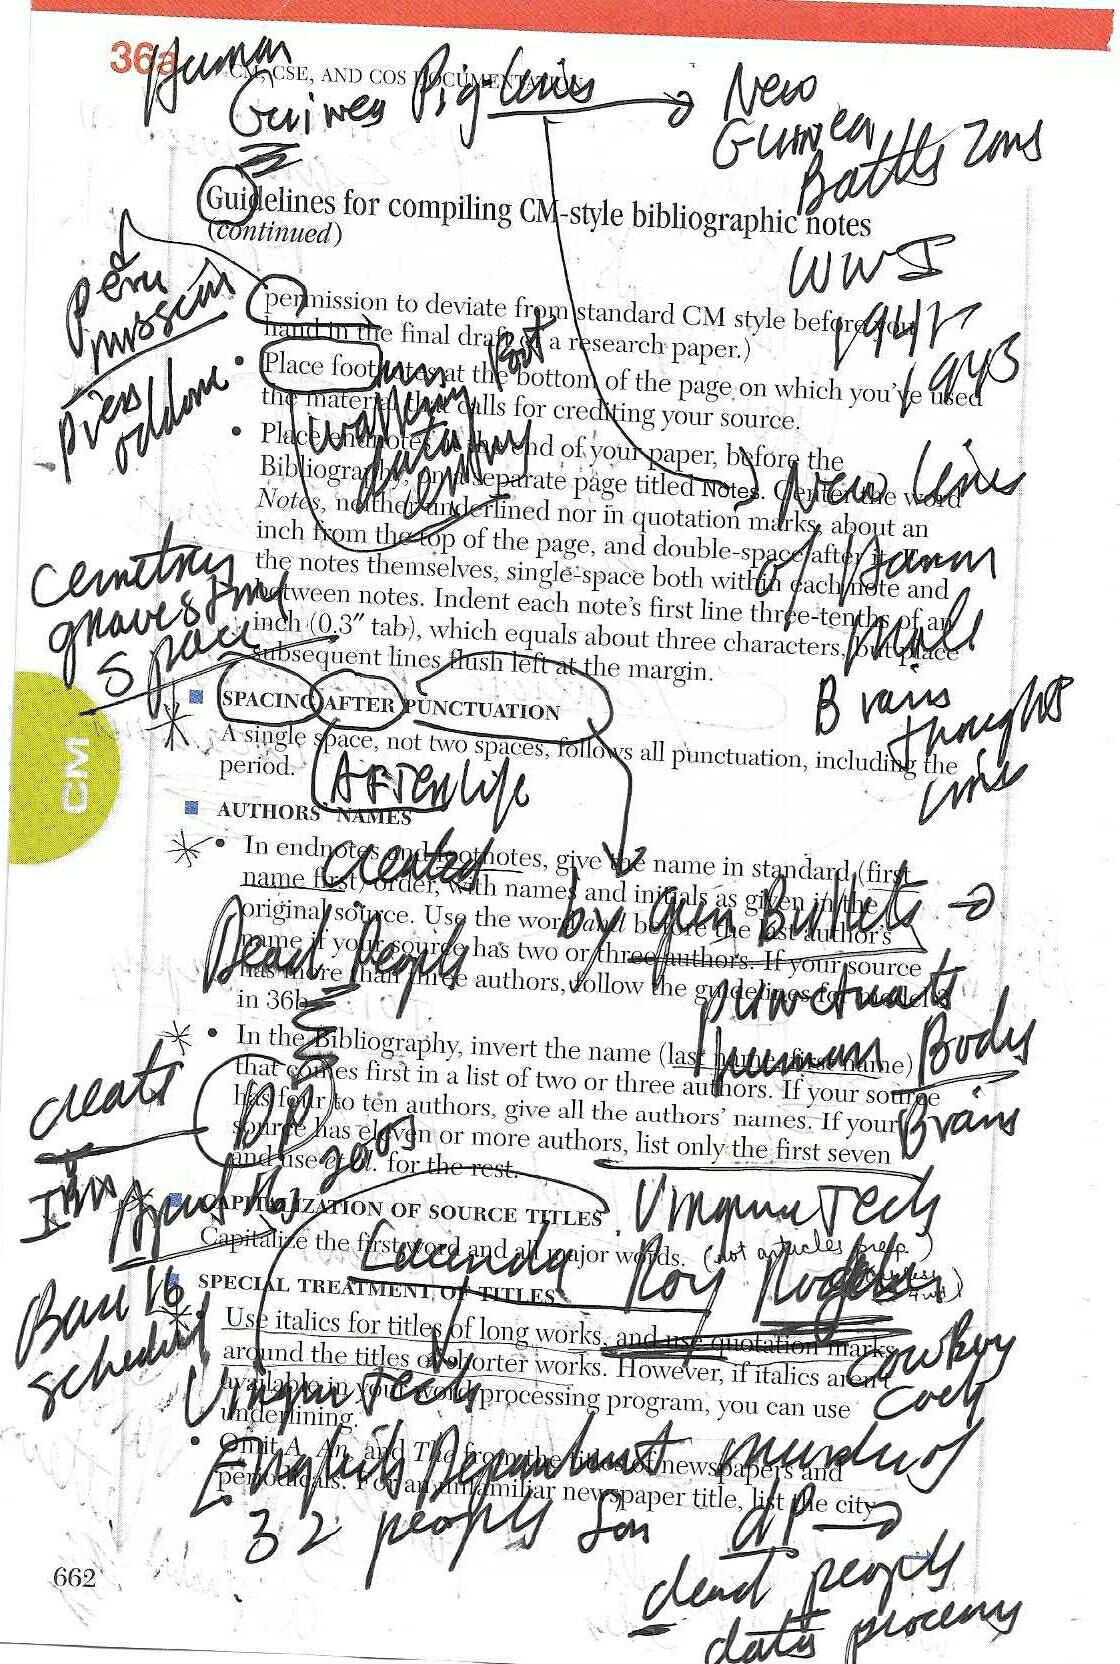 36a
CM, CSE, AND COS DOCUMENTATION
Human
Guinea Pig Lines → New
Guinea
Battle Zones
WWI
1942
1943
Guidelines for compiling CM-style bibliographic notes
(continued)
Peru
permission to deviate from standard CM style before you
hand in the final draft of a research paper.)
• Place footnotes at the bottom of the page on which you've used
the material that calls for crediting your source.
• Place endnotes at the end of your paper, before the
Bibliography, on a separate page titled Notes. Center the word
Notes, neither underlined nor in quotation marks, about an
inch from the top of the page, and double-space after it.
the notes themselves, single-space both within each note and
between notes. Indent each note's first line three-tenths of an
inch (0.3″ tab), which equals about three characters, but place
subsequent lines flush left at the margin.
New lines
of Human
male
Brains
thoughts
Cemetery
graves
space
SPACING AFTER PUNCTUATION
A single space, not two spaces, follows all punctuation, including the
period.
Afterlife
CM
AUTHORS' NAMES
• In endnotes and footnotes, give the name in standard (first
name first) order, with names and initials as given in the
original source. Use the word and before the last author's
name if your source has two or three authors. If your source
has more than three authors, follow the guidelines for
in 36b.
created
by gun Bullets →
Dead People
punctuate
human Body
Brains
• In the Bibliography, invert the name (last name, first name)
that comes first in a list of two or three authors. If your source
has four to ten authors, give all the authors' names. If your
source has eleven or more authors, list only the first seven
and use et al. for the rest.
create
DP
IBM
CAPITALIZATION OF SOURCE TITLES
Capitalize the first word and all major words. (not articles prep
Virginia Tech
Lucinda Roy Rogers
Cowboy
SPECIAL TREATMENT OF TITLES
• Use italics for titles of long works, and use quotation marks
around the titles of shorter works. However, if italics aren't
available in your word processing program, you can use
underlining.
Base 16
Virginia Tech
• Omit A, An, and The from the titles of newspapers and
periodicals. For an unfamiliar newspaper title, list the city
English Department murders
32 people for dP →
dead people
data process
662